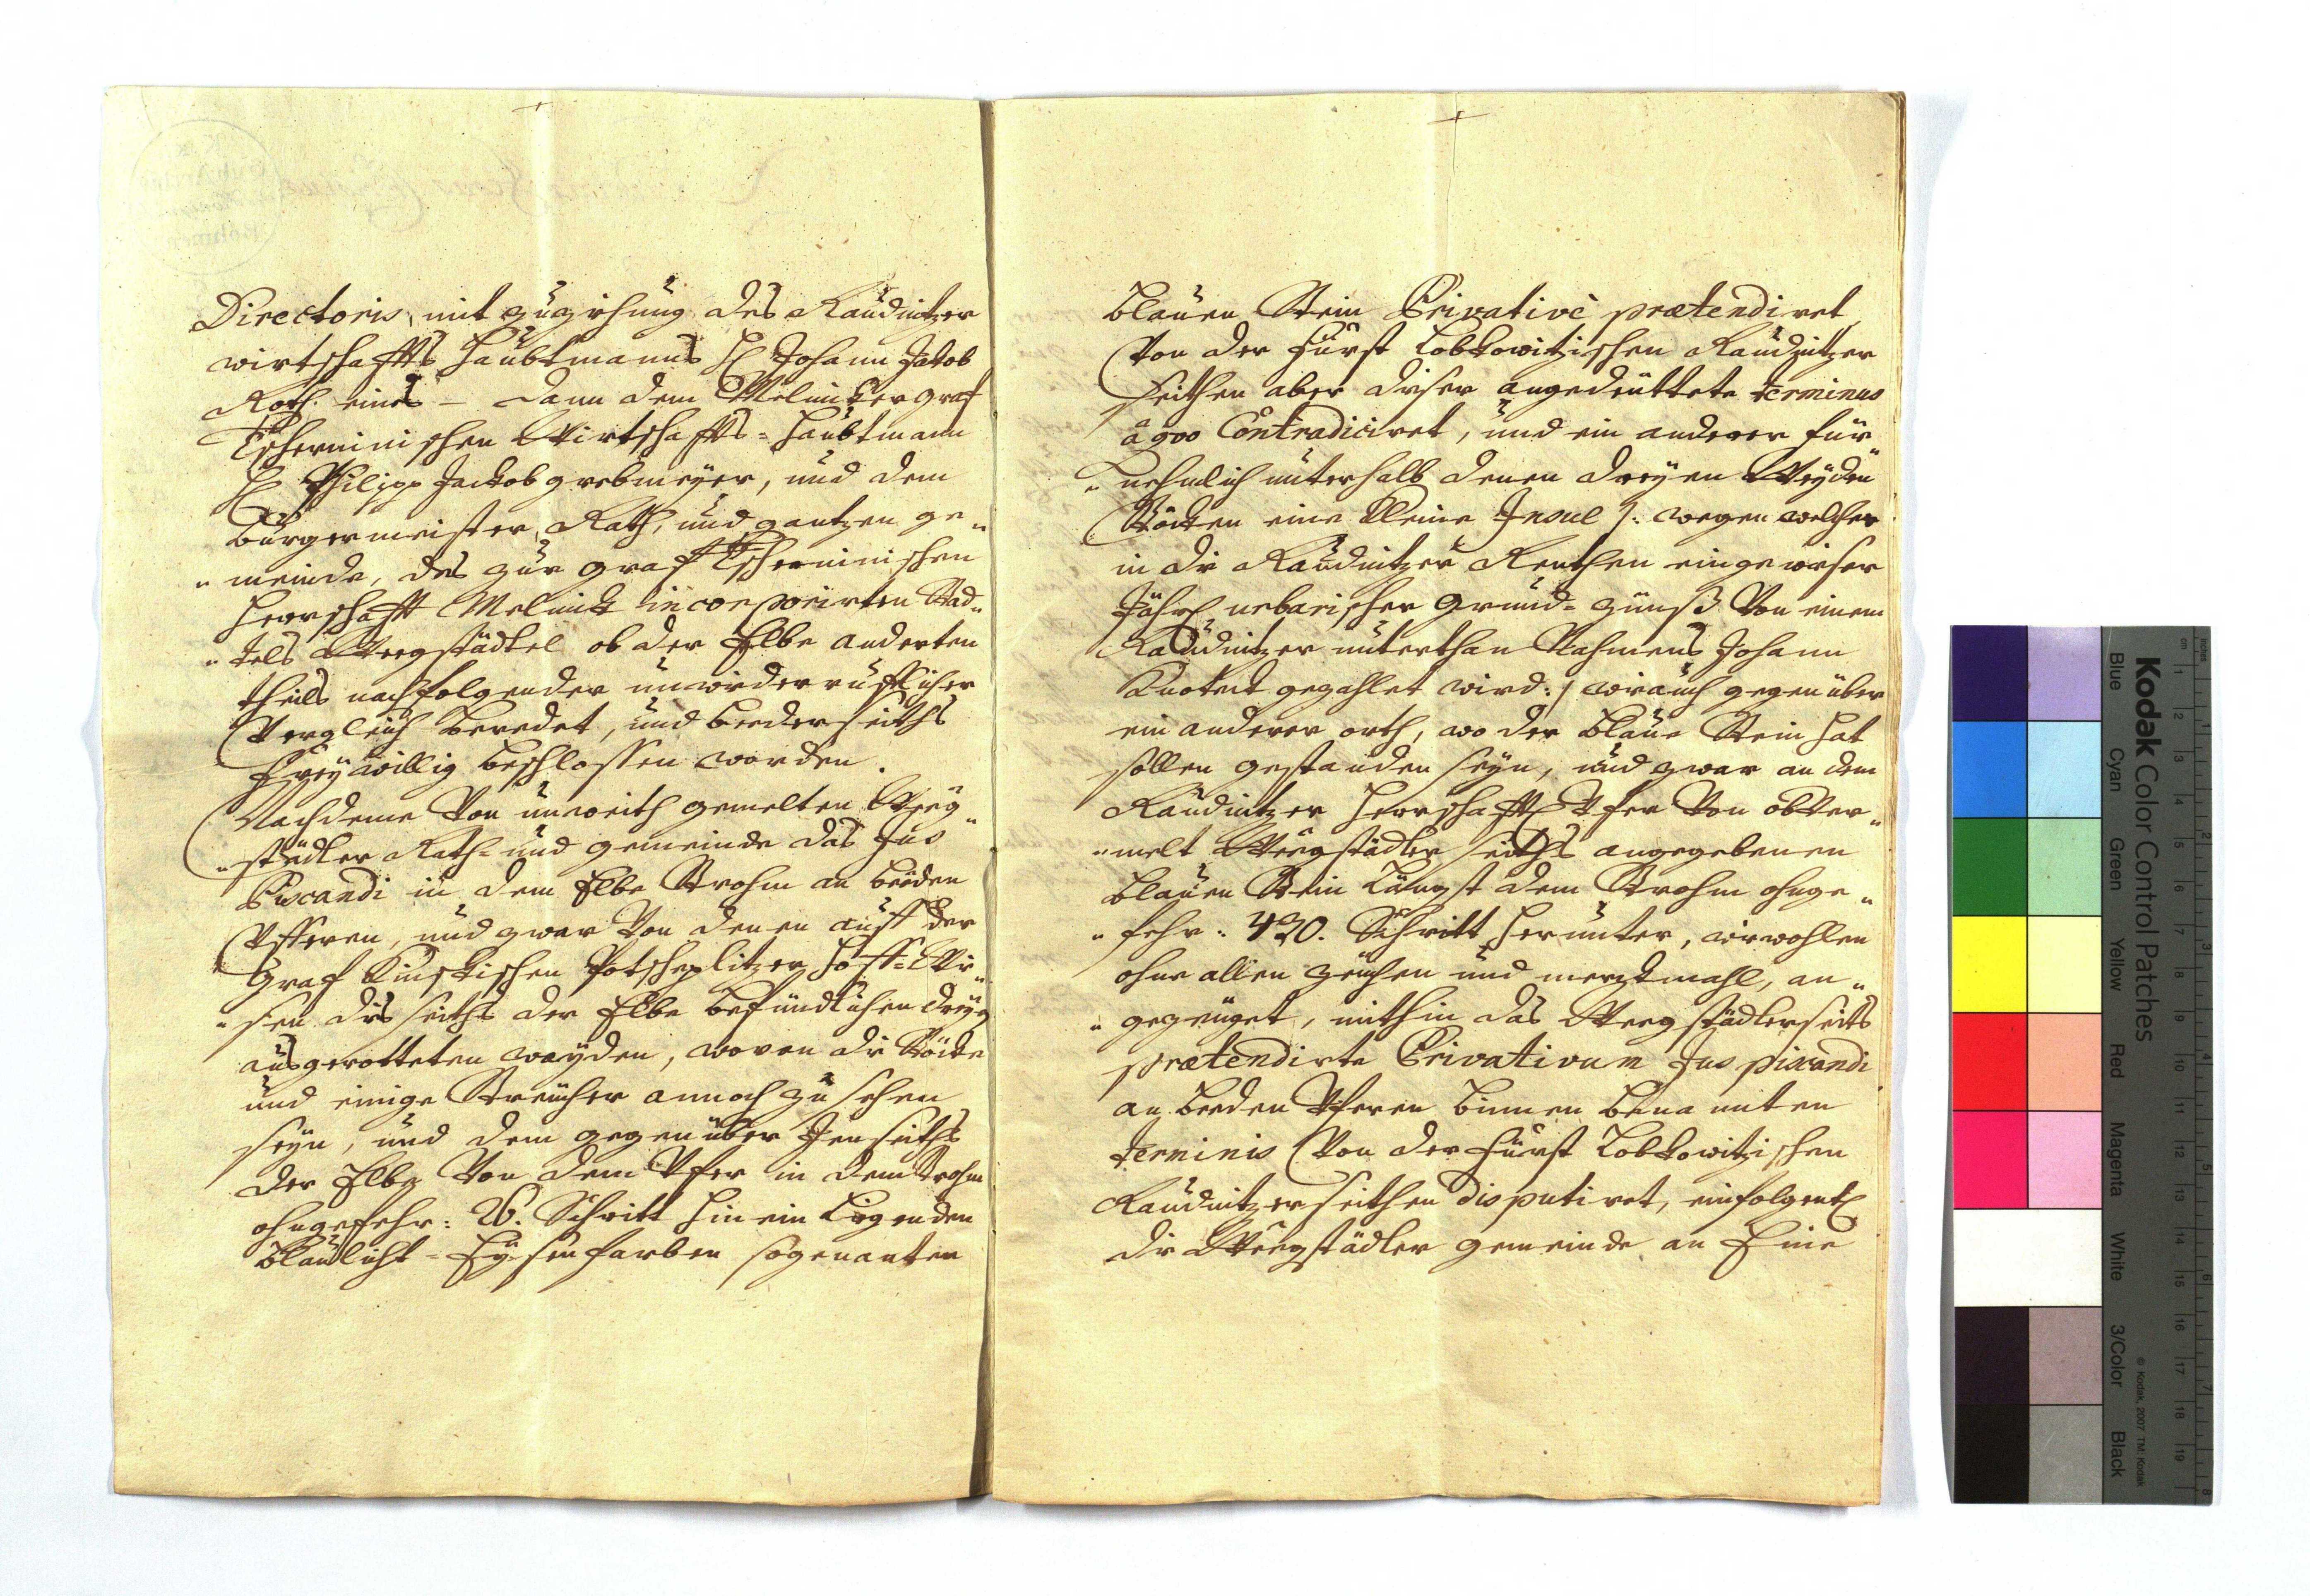 Directoris, mit zuzihung des Raudnitzer
wirtschaffts Haubtmanns H Johann Jakob
Roth eines – dann dem Melniker graf
Tscherninischen Wirtschaffts = Haubtmann
H Philipp Jackob grebmeyer, und dem
Burgermeister, Rath, und gantzen ge„
„meinde, des zur graf Tscherninischen
Herrschafft Melnik incorporirten Städ„
„tels Wegstädtel ob der Elbe anderten
theils nachfolgender unwiderrufflicher
Vergleich beredet, und beederseiths
Freywillig beschlossen worden.
Nachdeme Von unweith gemelten Weg„
„städler Rath= und gemeinde das Jus
Piscandi in dem Elbe Strohm an beeden
Ufferen, und zwar Von denen auff der
Graf Kinskischen Potscheplitzer Hoff=Wi„
„sen disseiths der Elbe befindlichen drey
ausgerotteten wayden, wovon die Stöcke
und einige Sträucher annoch zu sehen
seyn, und dem gegenüber Jenseiths
der Elbe Von dem Ufer in dem Strohm
ohngefehr: Schritt hinein Ligenden
blaulicht = Eysenfarben sogenanten
blauen Stein Privativè prætendiret
Von der Fürst Lobkowitzischen Raudnitzer
seithen aber diser angedeuttete terminus
Contradiciret, und ein anderer für„
„nehmlich unterhalb denen dreyen Weyden
Stöcken eine kleine Insul /: wegen welcher
in die Raudnitzer Renthen eingewiser
Jährl urbarischer Grund=Zünß Von einem
Raudnitzer unterthan Nahmens Johann
gezahlet wird :/ wie auch gegenüber
ein anderer orth, wo der blaue Stein hat
sollen gestanden seyn, und zwar an dem
Raudnitzer Herrschafftl Ufer Von obver„
„melt Wegstädler seiths angegebenen
blauen Stein Längst dem Strohm ohnge„
„fehr: 430. Schritt herunter, wiewohlen
ohne allen zeichen und merckmahl, an„
„gezeuget, mithin das Wegstädlerseits
prætendirte Privativum Jus piscandi
an beeden Uferen binnen benanten
terminis Von der Fürst Lobkowitzischen
Raudnitzer seithen disputiret, einfolgentl
die Wegstädler gemeinde an Eine